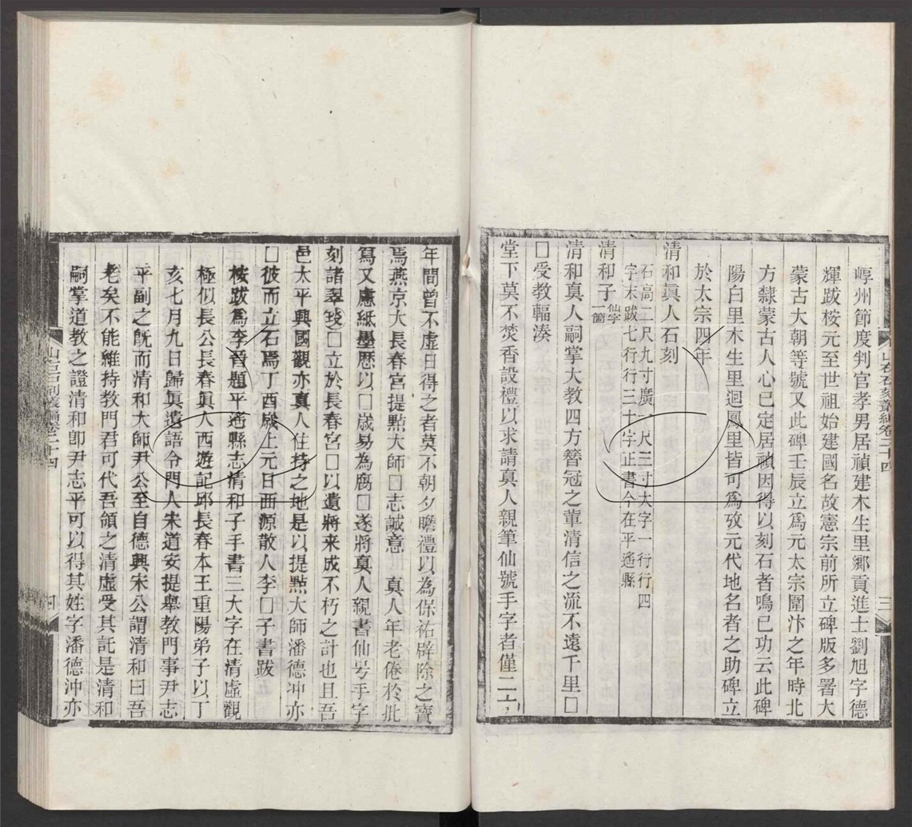 崞州節度判官孝男居禎建木生里鄉貢進士劉旭字德
輝跋桉元至世祖始建國名故憲宗前所立碑版多署大
蒙古大朝等號又此碑壬辰立爲元太宗圍汴之年時北
方隸蒙古人心已定居禎因得以刻石者鳴已功云此碑
陽白里木生里迴鳳里皆可爲攷元代地名者之助碑立
於太宗四年
清和眞人石刻
石高二尺九寸廣一尺三寸大字一行行四
字末跋七行行三十字正書今在平遙縣
清和子仙字一箇
清和真人嗣掌大教四方簪冠之輩清信之流不遠千里□
□受教輻湊
堂下莫不焚香設禮以求請真人親筆仙號手字者僅二十
年間曾不虛日得之者莫不朝夕瞻禮以為保祐辟除之寶
焉燕京大長春宮提點大師□志誠意 真人年老倦於批
寫又慮紙墨歷以□歲易為腐□遂將真人親書仙号手字
刻諸翠琰□立於長春宮□以遺將来成不朽之計也且吾
邑太平興國觀亦真人住持之地是以提點大師潘德冲亦
□彼而立石焉丁酉歲上元日西源散人李□子書跋
桉跋爲李晉題平遙縣志清和子手書三大字在清虛觀
極似長公長春眞人西遊記邱長春本王重陽弟子以丁
亥七月九日歸眞遺語令門人宋道安提舉教門事尹志
平副之旣而清和大師尹公至自德興宋公謂清和曰吾
老矣不能維持教門君可代吾領之清虛受其託是清和
嗣掌道教之證清和卽尹志平可以得其姓字潘德沖亦
山右石刻叢編卷二十四
三
山右石刻叢編卷二十四
四